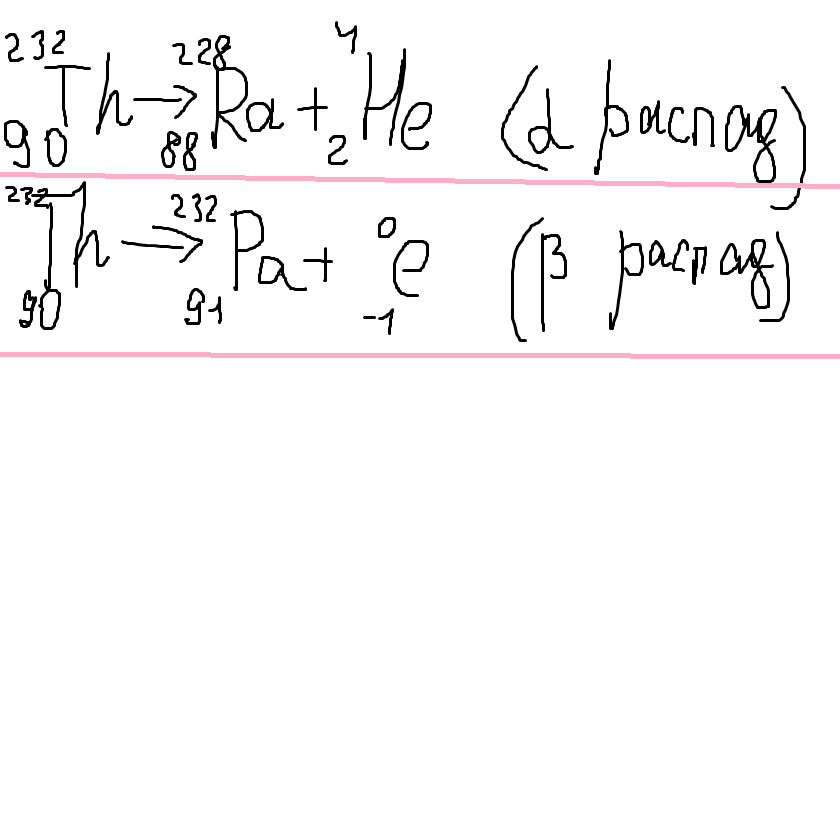 ²³²₉₀Th → ²²⁸₈₈Ra + ⁴₂He (α распад)
²³²₉₀Th → ²³²₉₁Pa + ⁰₋₁e (β распад)